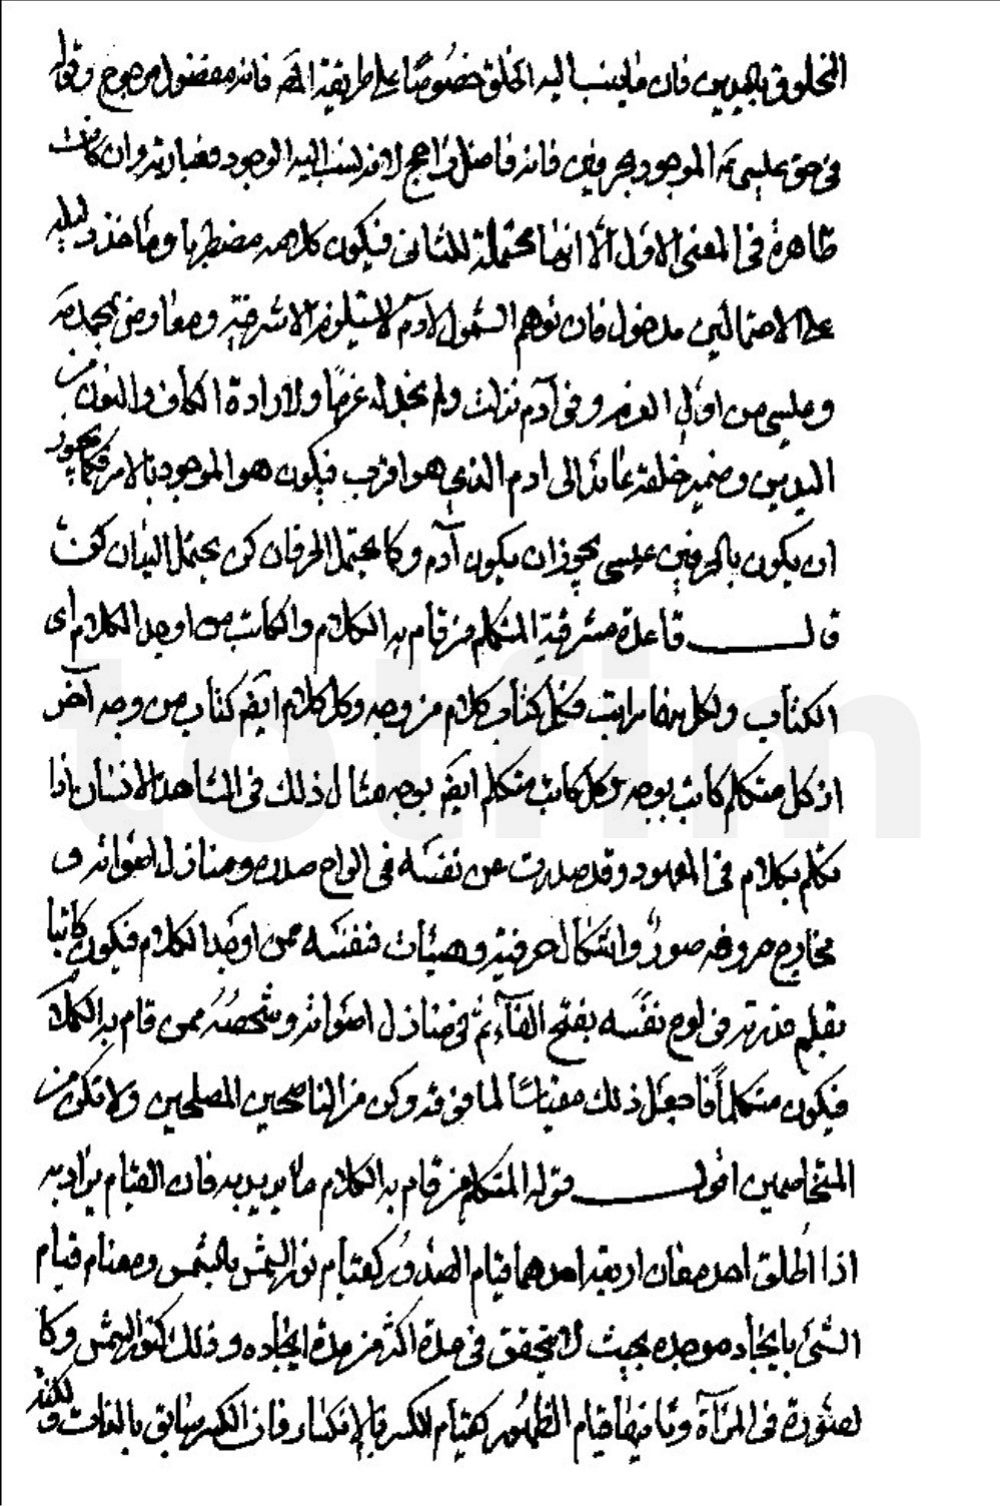 المخلوق باليدين فان ما ينسب اليه الخلق خصوصًا على طريقة المص فانه مفضول مرجوح وقوله
في حق عيسى ع الموجود بحرفين فانه فاضل راجح لانه نسب اليه الوجود فعبارته وان كانت
ظاهرة في المعنى الاول الا انها محتملة للثاني فيكون كلامه مضطربا وماخذ دليله
على الاحتمالين مدخول فان توهم الشمول لادم لا يستلزم الاشرفية ومعارض بمحمد ص
وعيسى من اولي العزم وفي آدم نزلت ولم نجد له عزمًا ولارادة الكاف والنون من
اليدين وضمير خلقه عائد الى ادم الذي هو اقرب فيكون هو الموجود بالامر فكما يجوز
ان يكون بالحرفين عيسى يجوز ان يكون آدم وكما يحتمل الحرفان كن يحتمل اليدان كن
قال قاعدة مشرقية المتكلم من قام به الكلام والكاتب من اوجد الكلام اى
الكتاب ولكل منهما مراتب فكل كتاب كلام من وجه وكل كلام ايض كتاب من وجه آخر
اذ كل متكلم كاتب بوجه وكل كاتب متكلم ايض بوجه مثال ذلك في الشاهد الانسان اذا
تكلم بكلام في المعهود وقد صدرت عن نفسه في الواح صدره ومنازل اصواته و
مخارج حروفه صور واشكال حرفية وهيئات فنفسه ممن اوجد الكلام فيكون كاتبا
بقلم قدرته في لوح نفسه بفتح الفآء ثم في منازل اصواته وشخصه ممن قام به الكلام
فيكون متكلماً فاجعل ذلك مقياسًا لما فوقه وكن من الناصحين المصلحين ولا تكن من
المتخاصمين اقول قوله المتكلم من قام به الكلام ما يريد به فان القيام يراد به
اذا اطلق احد معان اربعة احدهما قيام الصدور كقيام نور الشمس بالشمس ومعناه قيام
الشئ بايجاد موجده بحيث لا يتحقق في مدة اكثر من مدة ايجاده وذلك كنور الشمس وكا
لصورة في المرآة وثانيها قيام الظهور كقيام الكسر بالانكسار فان الكسر سابق بالذات ولكنه